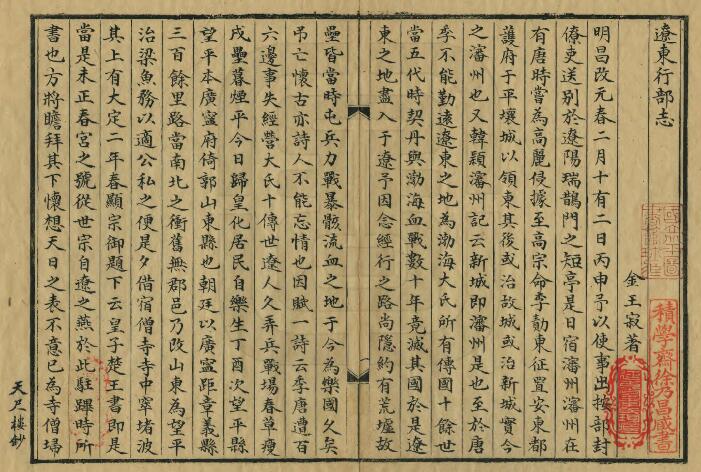 遼東行部志
金王寂著
明昌改元春二月十有二日丙申予以使事出按部封
僚吏送別於遼陽瑞鵲門之短亭是日宿瀋州瀋州在
有唐時嘗為高麗侵據至高宗命李勣東征置安東都
護府于平壤城以領東其後或治故城或治新城實今
之瀋州也又韓穎瀋州記云新城即瀋州是也至於唐
季不能勤遠遼東之地為渤海大氏所有傳國十餘世
當五代時契丹與渤海血戰數十年竟滅其國於是遼
東之地盡入于遼予因念經行之路尚隱約有荒墟故
壘皆當時屯兵力戰暴骸流血之地于今為樂國久矣
弔亡懷古亦詩人不能忘情也因賦一詩云李唐遭百
六邊事失經營大氏十傳世遼人久弄兵戰場春草瘦
戍壘暮煙平今日歸皇化居民自樂生丁酉次望平縣
望平本廣寧府倚郭山東縣也朝廷以廣寧距章義縣
三百餘里路當南北之衝舊無郡邑乃改山東為望平
治梁魚務以適公私之便是夕借宿僧寺寺中窣堵波
其上有大定二年春顯宗御題下云皇子楚王書即是
當是未正春宮之號從世宗自遼之燕於此駐蹕時所
書也方將瞻拜其下懷想天日之表不意已為寺僧埽
天尺樓鈔
積學齋徐乃昌藏書